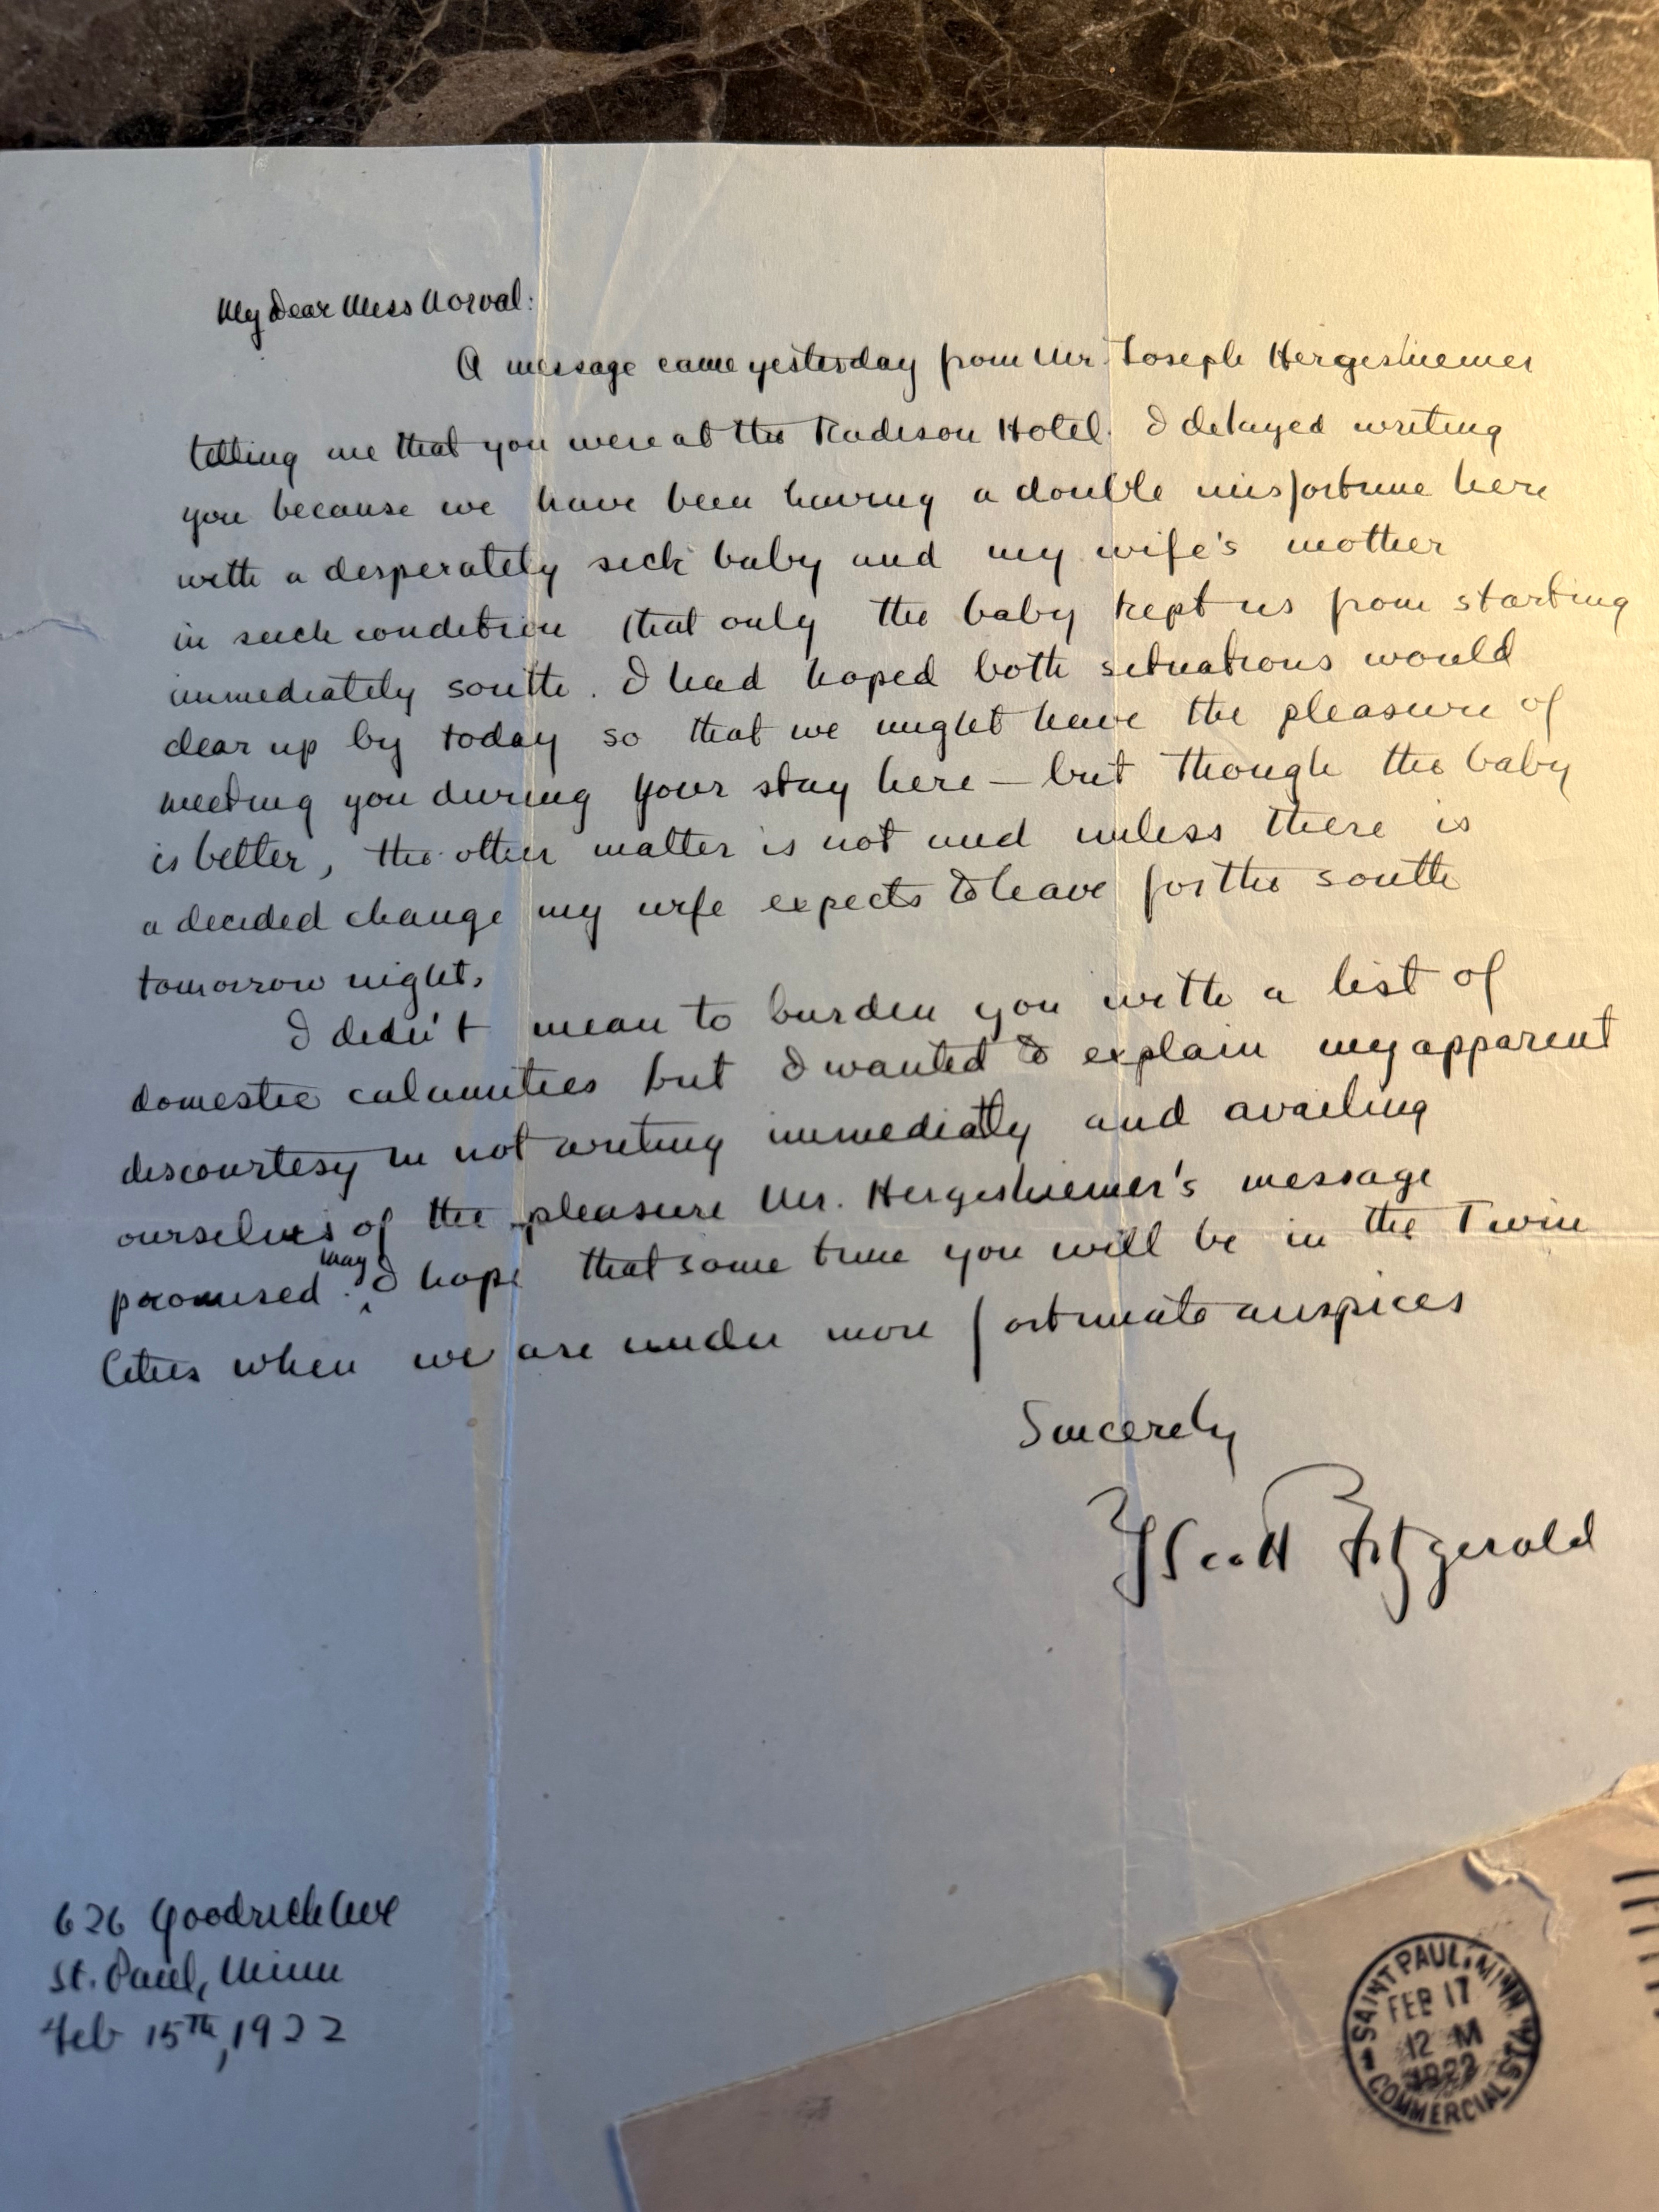 My Dear Miss Norval:
A message came yesterday from Mr. Joseph Hergeshiemer
telling me that you were at the Radison Hotel. I delayed writing
you because we have been having a double misfortune here
with a desperately sick baby and my wife's mother
in such condition that only the baby kept us from starting
immediately south. I had hoped both situations would
clear up by today so that we might have the pleasure of
meeting you during your stay here — but though the baby
is better, the other matter is not and unless there is
a decided change my wife expects to leave for the south
tomorrow night.
I didn't mean to burden you with a list of
domestic calamities but I wanted to explain my apparent
discourtesy in not writing immediatly and availing
ourselves of the pleasure Mr. Hergeshiemer's message
promised. may I hope that some time you will be in the Twin
Cities when we are under more fortunate auspices
Sincerely
F Scott Fitzgerald
626 Goodrich Ave
St. Paul, Minn
Feb 15th, 1922
SAINT PAUL, MINN.
FEB 17
12 M
1922
COMMERCIAL STA.